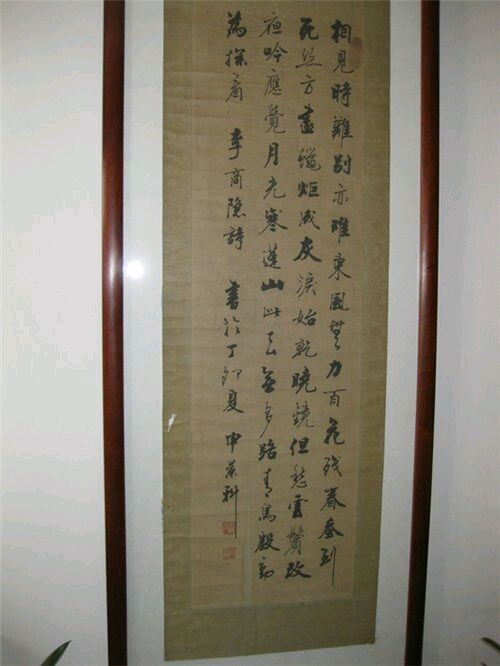 相見時難別亦難東風無力百花殘春蚕到
死丝方盡蠟炬成灰淚始乾曉鏡但愁雲鬢改
夜吟應覺月光寒蓬山此去無多路青鳥殷勤
為探看 李商隱詩 書於丁卯夏 申科